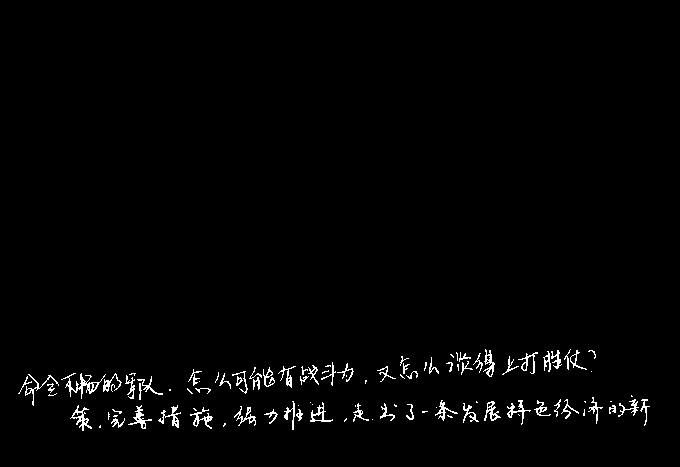 命令不畅的军队.怎么可能有战斗力,又怎么谈得上打胜仗?
策,完善措施,强力推进,走出了一条发展特色经济的新